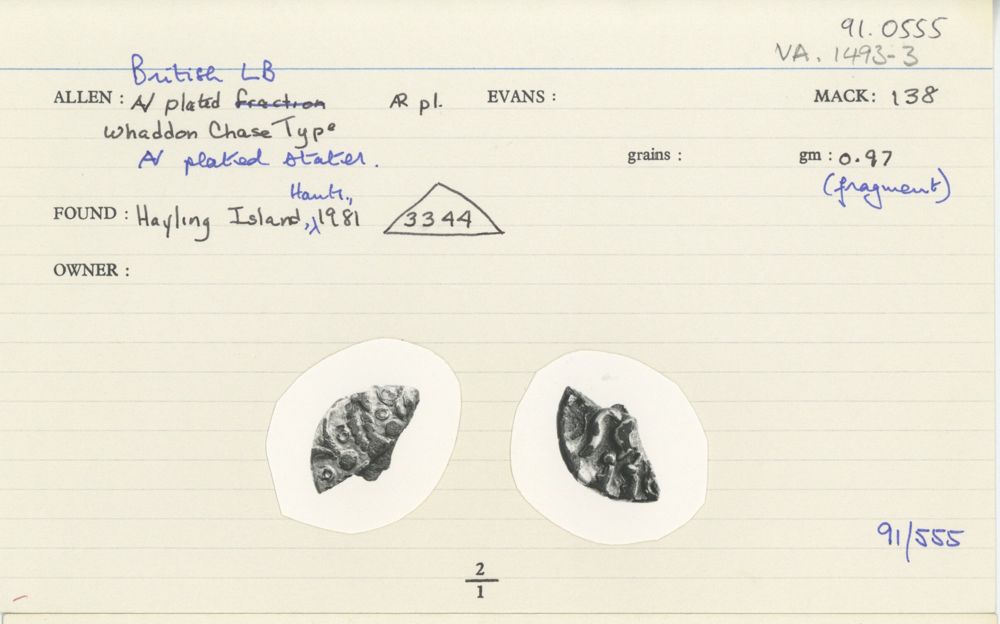 91.0555
VA. 1493-3
British LB
ALLEN : A/ plated fraction AR pl. EVANS : MACK: 138
Whaddon Chase Type
A/ plated stater. grains : gm : 0.97
(fragment)
Hants.,
FOUND : Hayling Island, 1981 3344
OWNER :
91/555
2
1